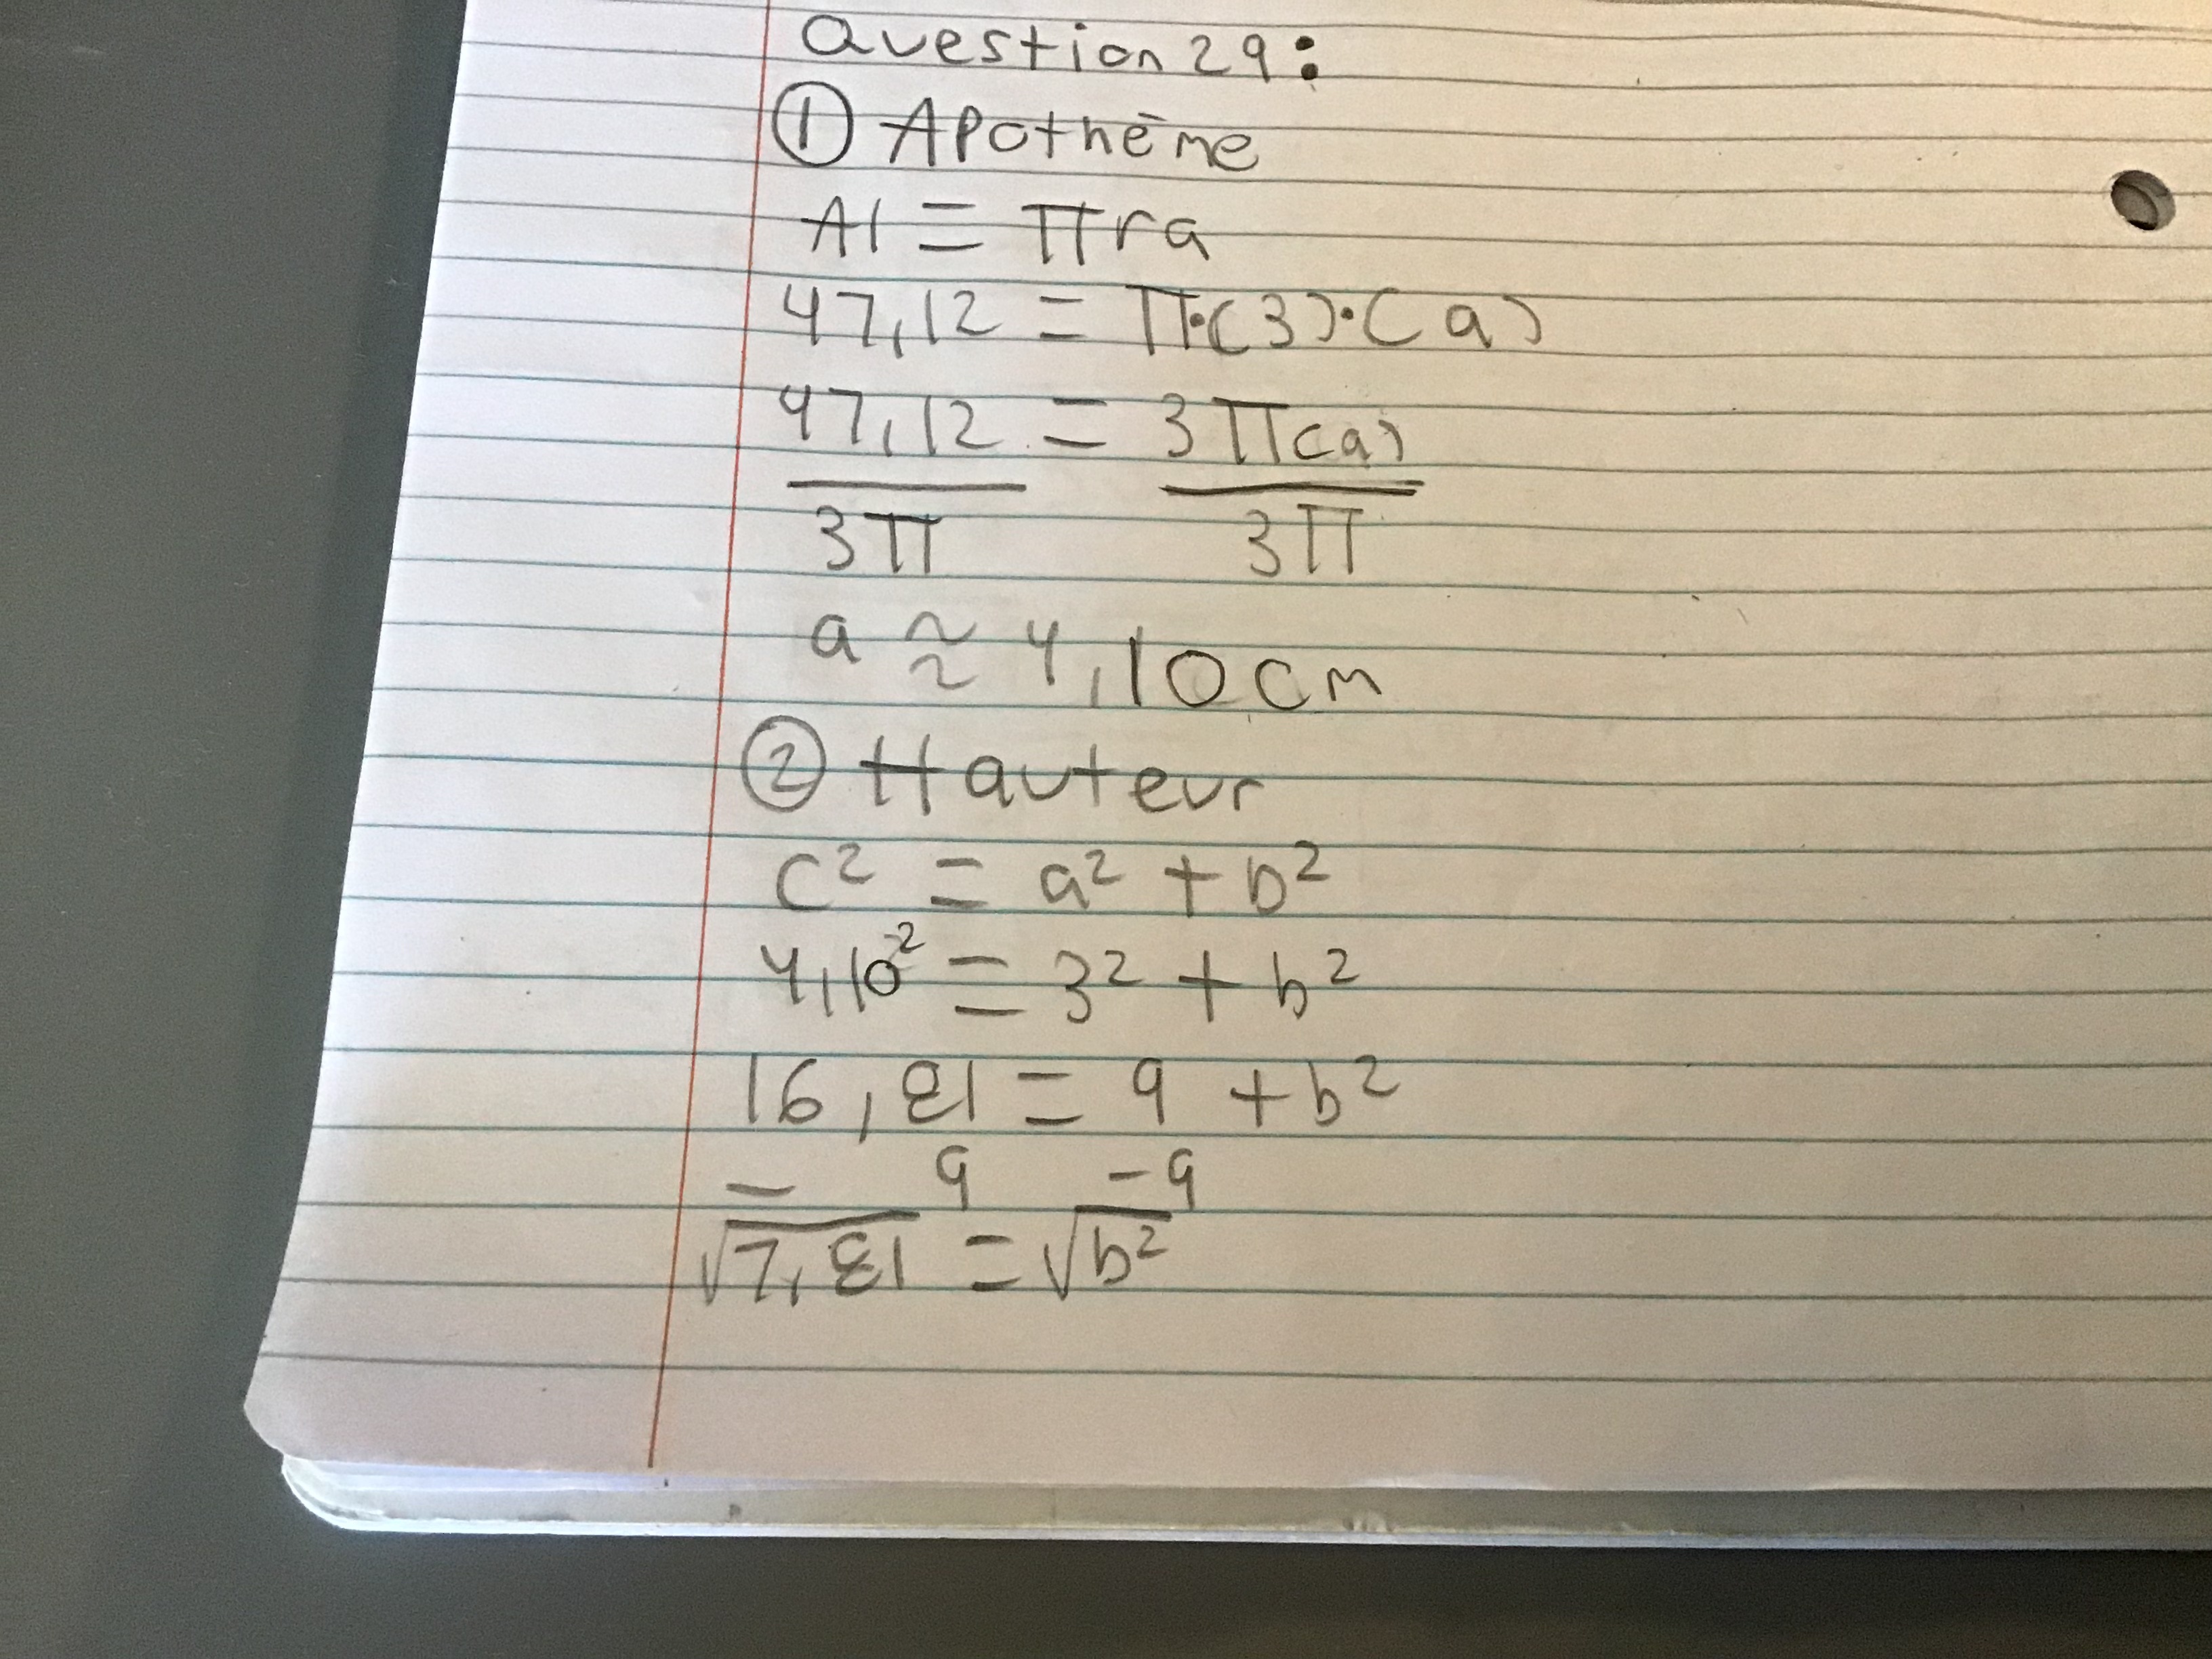 Question 29:
① Apothème
Al = πra
47,12 = π·(3)·(a)
47,12 = 3π(a)
3π 3π
a ≈ 4,10 cm
② Hauteur
c² = a² + b²
4,10² = 3² + b²
16,81 = 9 + b²
- 9 -9
√7,81 = √b²